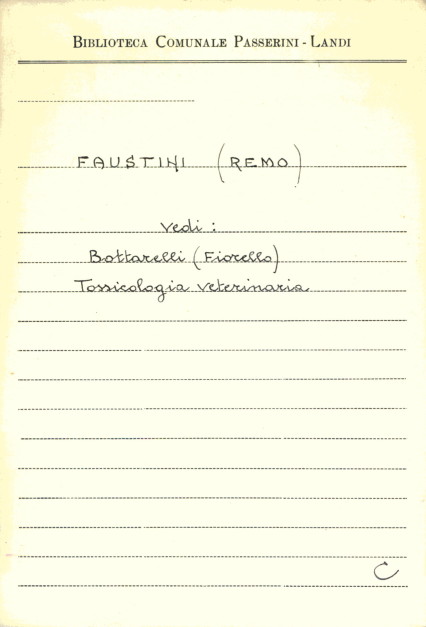 BIBLIOTECA COMUNALE PASSERINI - LANDI
FAUSTINI (REMO)
vedi :
Bottarelli (Fiorello)
Tossicologia veterinaria
C